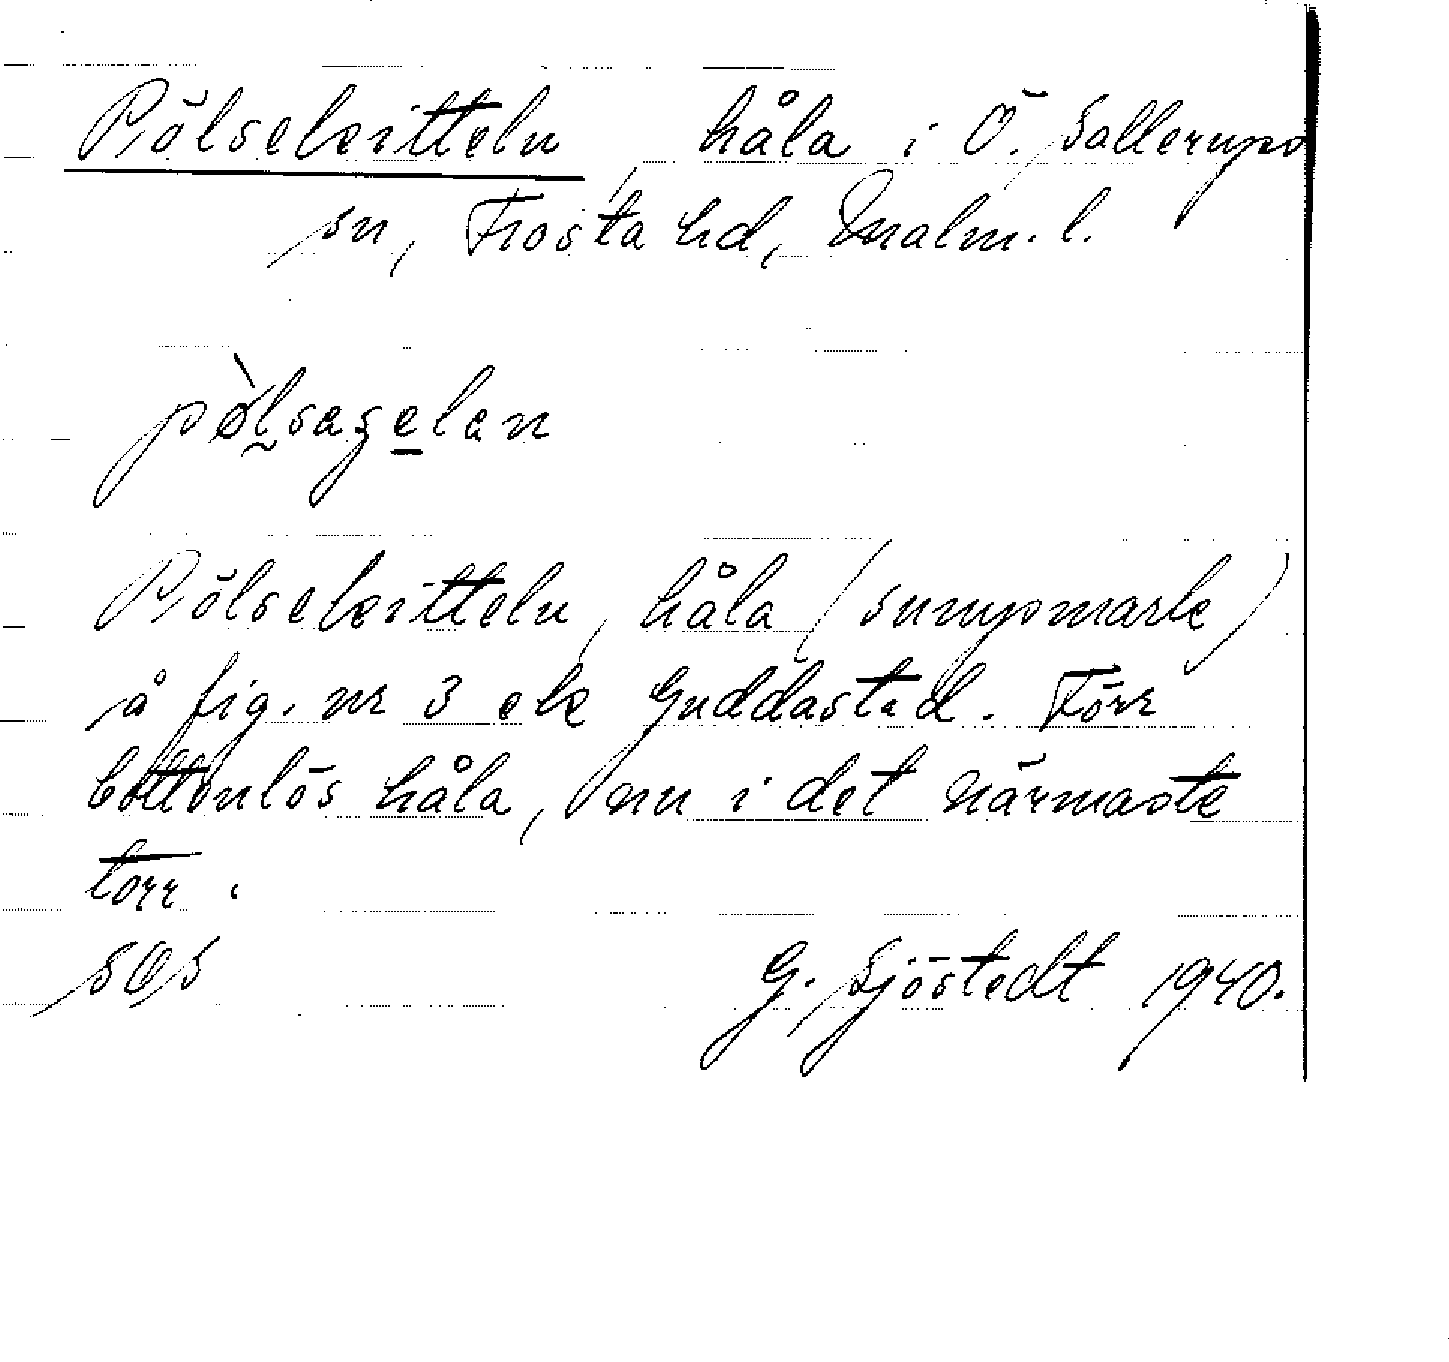 Pölsekitteln, håla i Ö. Sallerups
sn, Frosta hd, Malm. l.
pölsaʒelan
Pölsekitteln, håla (sumpmark)
å fig. nr 3 ek Guddastad. Förr
bottenlös håla, nu i det närmaste
torr.
SOS G. Sjöstedt 1940.